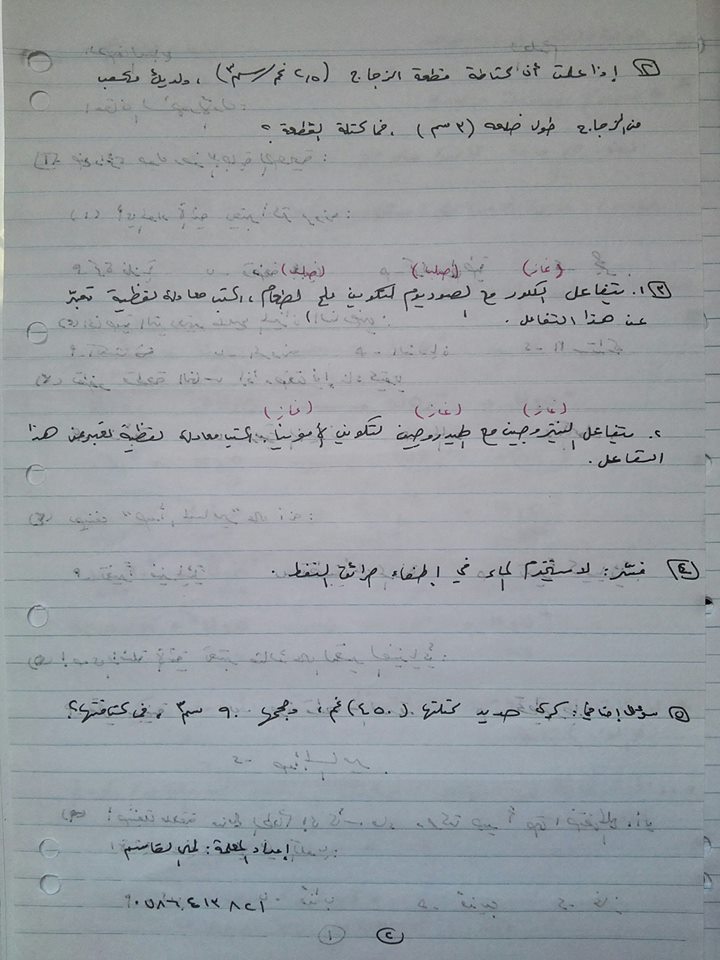 ٢ إذا علمت أن كثافة قطعة الزجاج (٢,٥ غم/سم٣) ، ولديك مكعب
من الزجاج طول ضلعه (٣ سم) ، فما كتلة القطعة ؟
(غاز) (صلب) (صلب)
٣ ١. يتفاعل الكلور مع الصوديوم لتكوين ملح الطعام ، اكتب معادلة لفظية تعبّر
عن هذا التفاعل .
(غاز) (غاز) (غاز)
٢. يتفاعل النيتروجين مع الهيدروجين لتكوين الأمونيا . اكتب معادلة لفظية تعبر عن هذا
التفاعل .
٤ فسّر : لا يستخدم الماء في إطفاء حرائق النفط .
٥ سؤال إضافي : كرة حديد كتلتها (٤٥٠) غم ، وحجمها ٩٠ سم٣ ، فما كثافتها ؟
إعداد المعلمة : لمى القاسم
٢